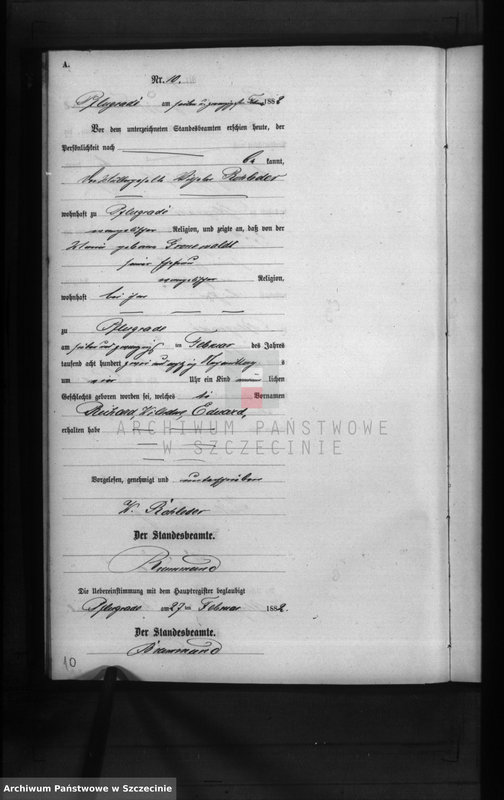 A.
Nr. 10.
Pflugrade am sieben u. zwanzigsten Febr. 1882
Vor dem unterzeichneten Standesbeamten erschien heute, der
Persönlichkeit nach
be kannt,
Wilhelm Rohleder
wohnhaft zu Pflugrade
evangelischer Religion, und zeigte an, daß von der
geborne
seiner Ehefrau
evangelischer Religion,
wohnhaft bei ihm
zu Pflugrade
am sieben und zwanzig ten Februar des Jahres
tausend acht hundert zwei und achtzig Nachmittag s
um vier Uhr ein Kind männ lichen
Geschlechts geboren worden sei, welches die Vornamen
Richard, Wilhelm, Eduard,
erhalten habe
Vorgelesen, genehmigt und unterschrieben
W. Rohleder
Der Standesbeamte.
Die Uebereinstimmung mit dem Hauptregister beglaubigt
Pflugrade am 27 ten Februar 1882.
Der Standesbeamte.
10
ARCHIWUM PAŃSTWOWE
W SZCZECINIE
Archiwum Państwowe w Szczecinie